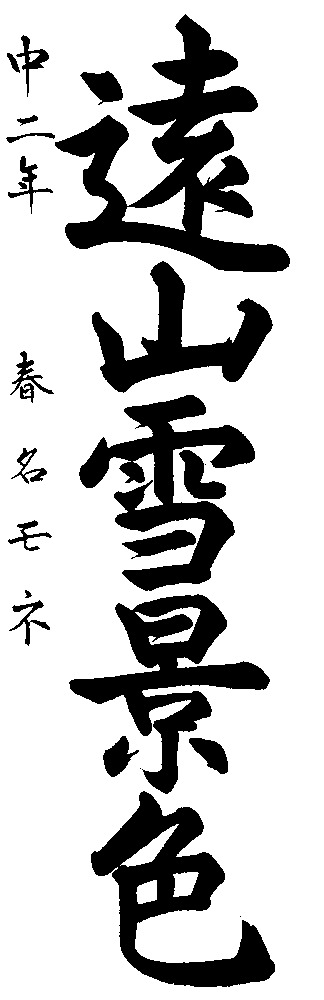 遠山雪景色
中二年 春名モネ